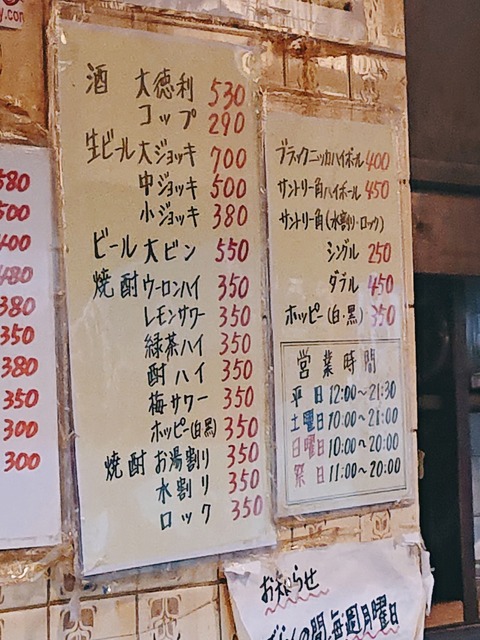 酒 大徳利 530
コップ 290
生ビール 大ジョッキ 700
中ジョッキ 500
小ジョッキ 380
ビール 大ビン 550
焼酎 ウーロンハイ 350
レモンサワー 350
緑茶ハイ 350
酎ハイ 350
梅サワー 350
ホッピー(白黒) 350
焼酎 お湯割り 350
水割り 350
ロック 350
ブラックニッカハイボール 400
サントリー角ハイボール 450
サントリー角(水割り・ロック)
シングル 250
ダブル 450
ホッピー(白・黒) 350
営業時間
平日 12:00〜21:30
土曜日 10:00〜21:00
日曜日 10:00〜20:00
祭日 11:00〜20:00
580
500
400
480
380
350
380
350
300
300
お知らせ
の間、毎週月曜日